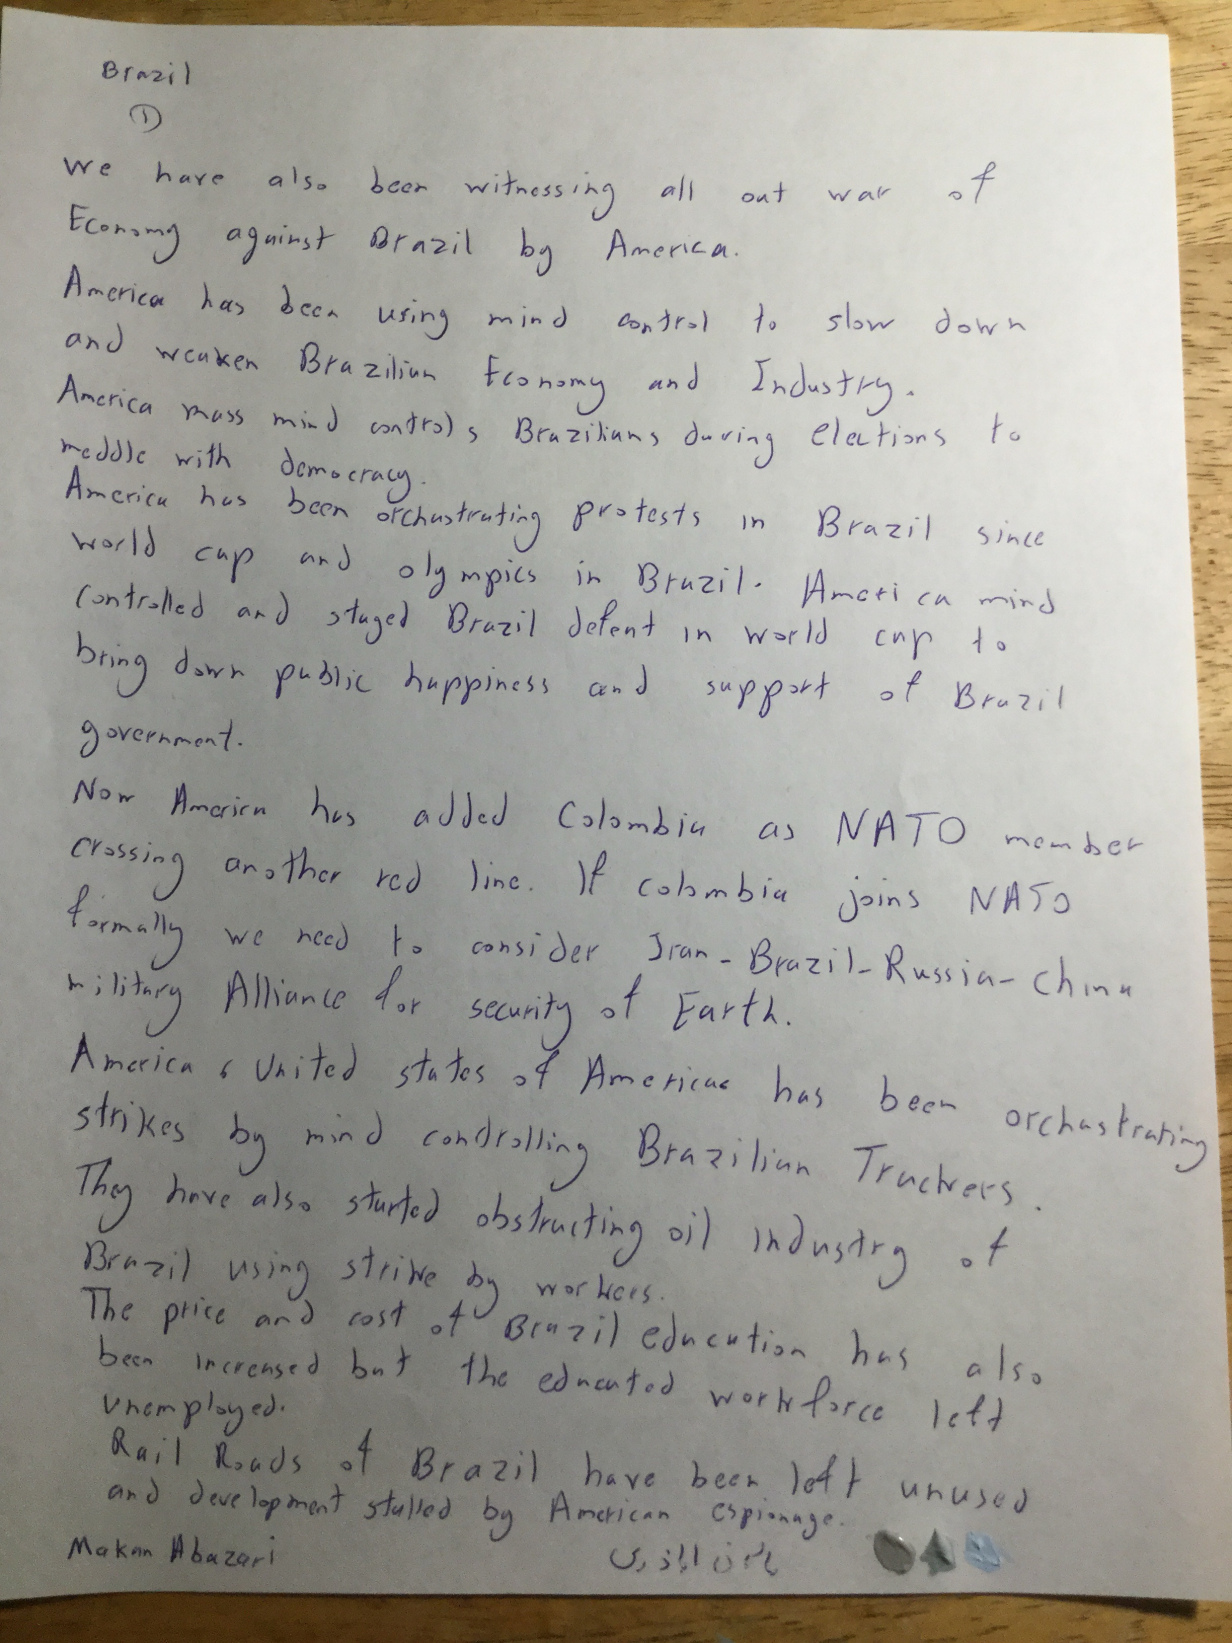 Brazil
①
We have also been witnessing all out war of
Economy against Brazil by America.
America has been using mind control to slow down
and weaken Brazilian Economy and Industry.
America mass mind controls Brazilians during elections to
meddle with democracy.
America has been orchastrating protests in Brazil since
world cup and olympics in Brazil. America mind
controlled and staged Brazil defeat in world cup to
bring down public happiness and support of Brazil
government.
Now America has added Colombia as NATO member
crossing another red line. If colombia joins NATO
formally we need to consider Iran-Brazil-Russia-China
military Alliance for security of Earth.
America & United states of Americas has been orchastrating
strikes by mind controlling Brazilian Truckers.
They have also started obstructing oil industry of
Brazil using strike by workers.
The price and cost of Brazil education has also
been increased but the educated workforce left
unemployed.
Rail Roads of Brazil have been left unused
and development stalled by American espionage.
Makan Abazari